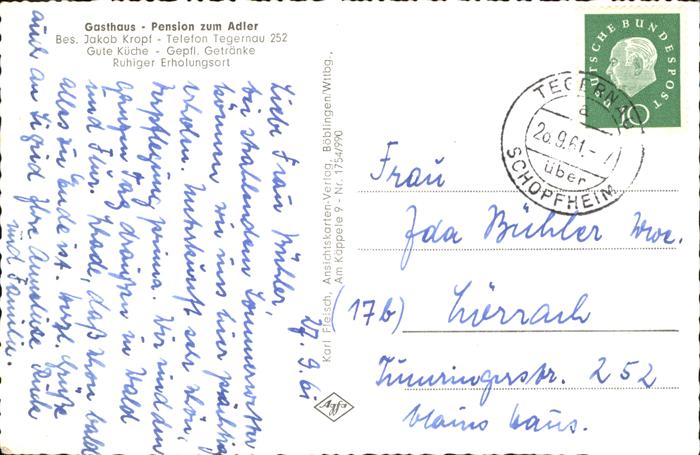 Gasthaus - Pension zum Adler
Bes. Jakob Kropf - Telefon Tegernau 252
Gute Küche - Gepfl. Getränke
Ruhiger Erholungsort
27.9.61
Liebe Frau Bühler,
bei strahlendem Sommerwetter
können wir uns hier prächtig
erholen. Unterkunft sehr schön,
Verpflegung prima. Wir sind den
ganzen Tag draußen in Wald
und Flur. Schade, daß schon bald
alles zu Ende ist. Herzl. Grüße
auch an Sigrid Ihre Anneliese
und Familie.
Karl Fleisch, Ansichtskarten-Verlag, Böblingen/Wttbg.,
Am Käppele 9 - Nr. 1754/990
Agfa
DEUTSCHE BUNDESPOST
10
TEGERNAU
a
.9.61.-7
über
SCHOPFHEIM
Frau
Ida Bühler Wwe.
(17b) Lörrach
Tumringerstr. 252